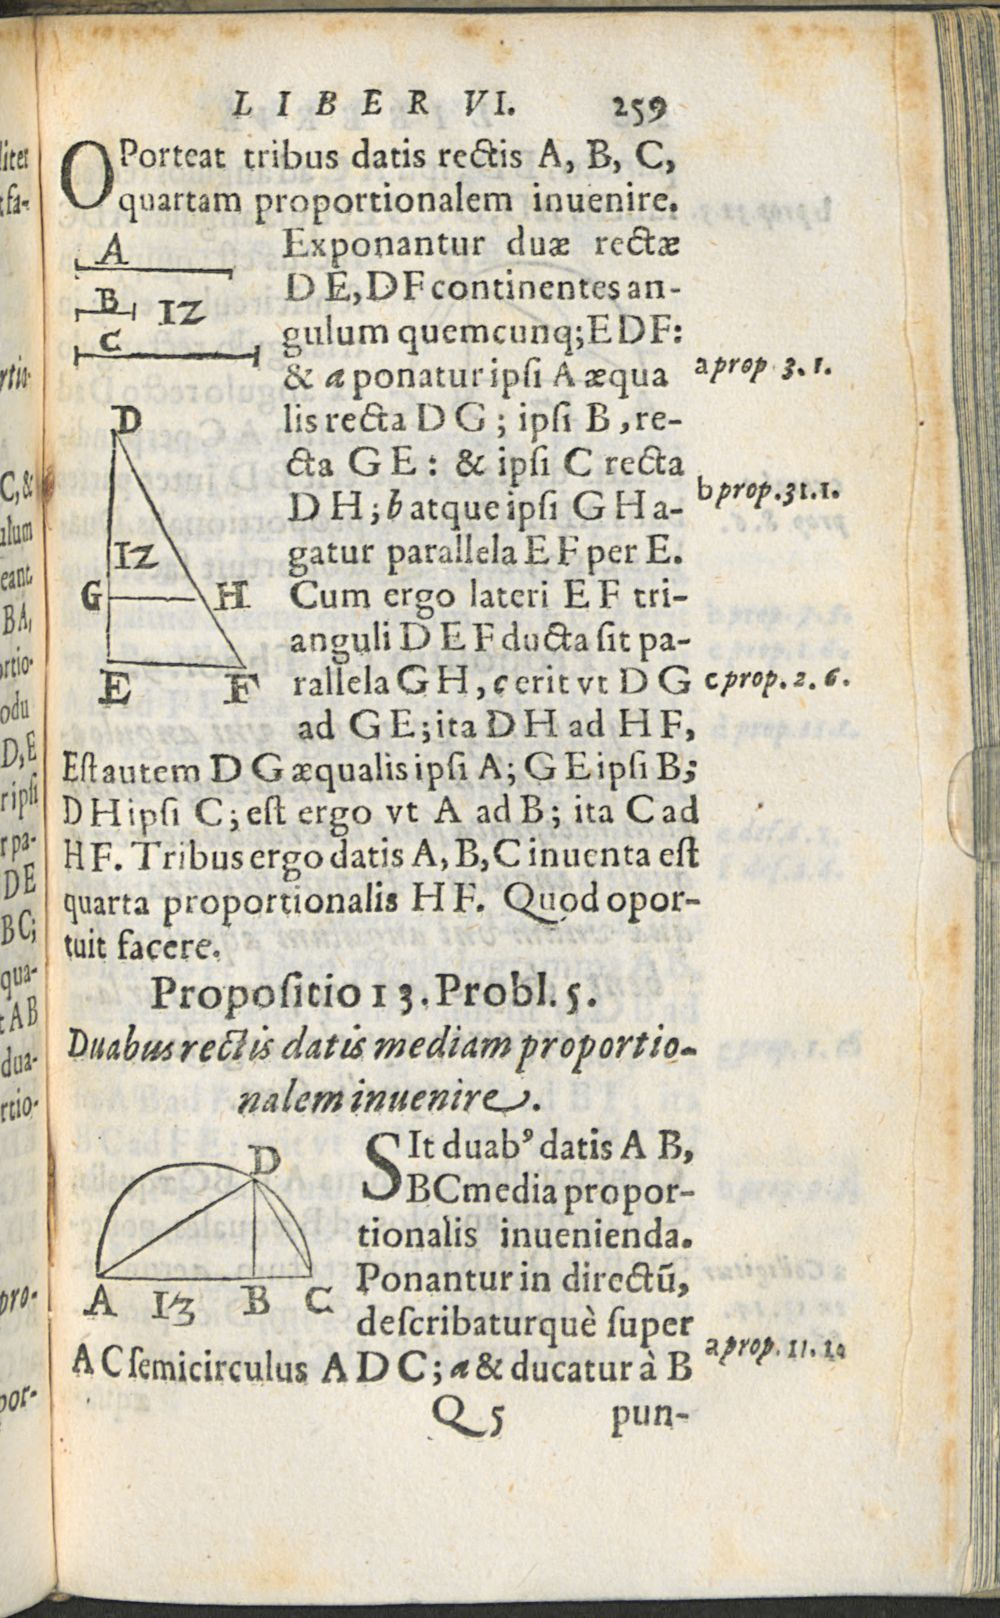 LIBER VI. 259
OPorteat tribus datis rectis A, B, C,
quartam proportionalem inuenire.
Exponantur duæ rectæ
D E, D F continentes an-
gulum quemcunq; E D F:
& a ponatur ipſi A æqua
lis recta D G ; ipſi B , re-
cta G E : & ipſi C recta
D H ; b atque ipſi G H a-
gatur parallela E F per E.
Cum ergo lateri E F tri-
anguli D E F ducta ſit pa-
rallela G H , c erit vt D G
ad G E ; ita D H ad H F,
Eſt autem D G æqualis ipſi A; G E ipſi B;
D H ipſi C ; eſt ergo vt A ad B ; ita C ad
H F. Tribus ergo datis A, B, C inuenta eſt
quarta proportionalis H F. Quod opor-
tuit facere.
a prop. 3. 1.
b prop. 31. 1.
c prop. 2. 6.
A
B
12
C
D
12
G H
E F
Propoſitio 13. Probl. 5.
Duabus rectis datis mediam proportio-
nalem inuenire.
SIt duab' datis A B,
B C media propor-
tionalis inuenienda.
Ponantur in directū,
deſcribaturquè ſuper
A C ſemicirculus A D C ; a & ducatur à B
D
A 13 B C
a prop. 11. 1.
Q 5 pun-
liter
tfa-
rtio-
C, &
ulum
eant.
BA,
ortio-
odu
D, E
r ipſi
r pa-
DE
BC;
qua-
t AB
dua-
rtio-
pro-
por-